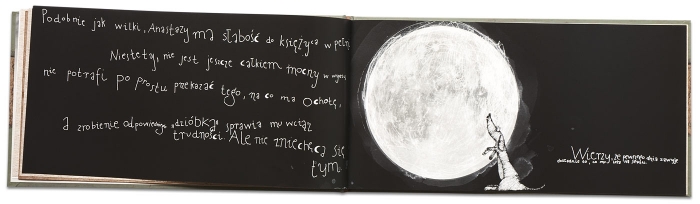 Podobnie jak wilki, Anastazy ma słabość do księżyca w pełni
Niestety, nie jest jeszcze całkiem mocny w
nie potrafi po prostu przekazać tego, na co ma ochotę,
a zrobienie odpowiedniego „dzióbka" sprawia mu wciąż
trudności. Ale nie zniechęca się
tym
Wierzy, że pewnego dnia zawyje